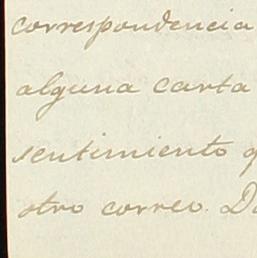 correspondencia
alguna carta
sentimiento
otro correo.